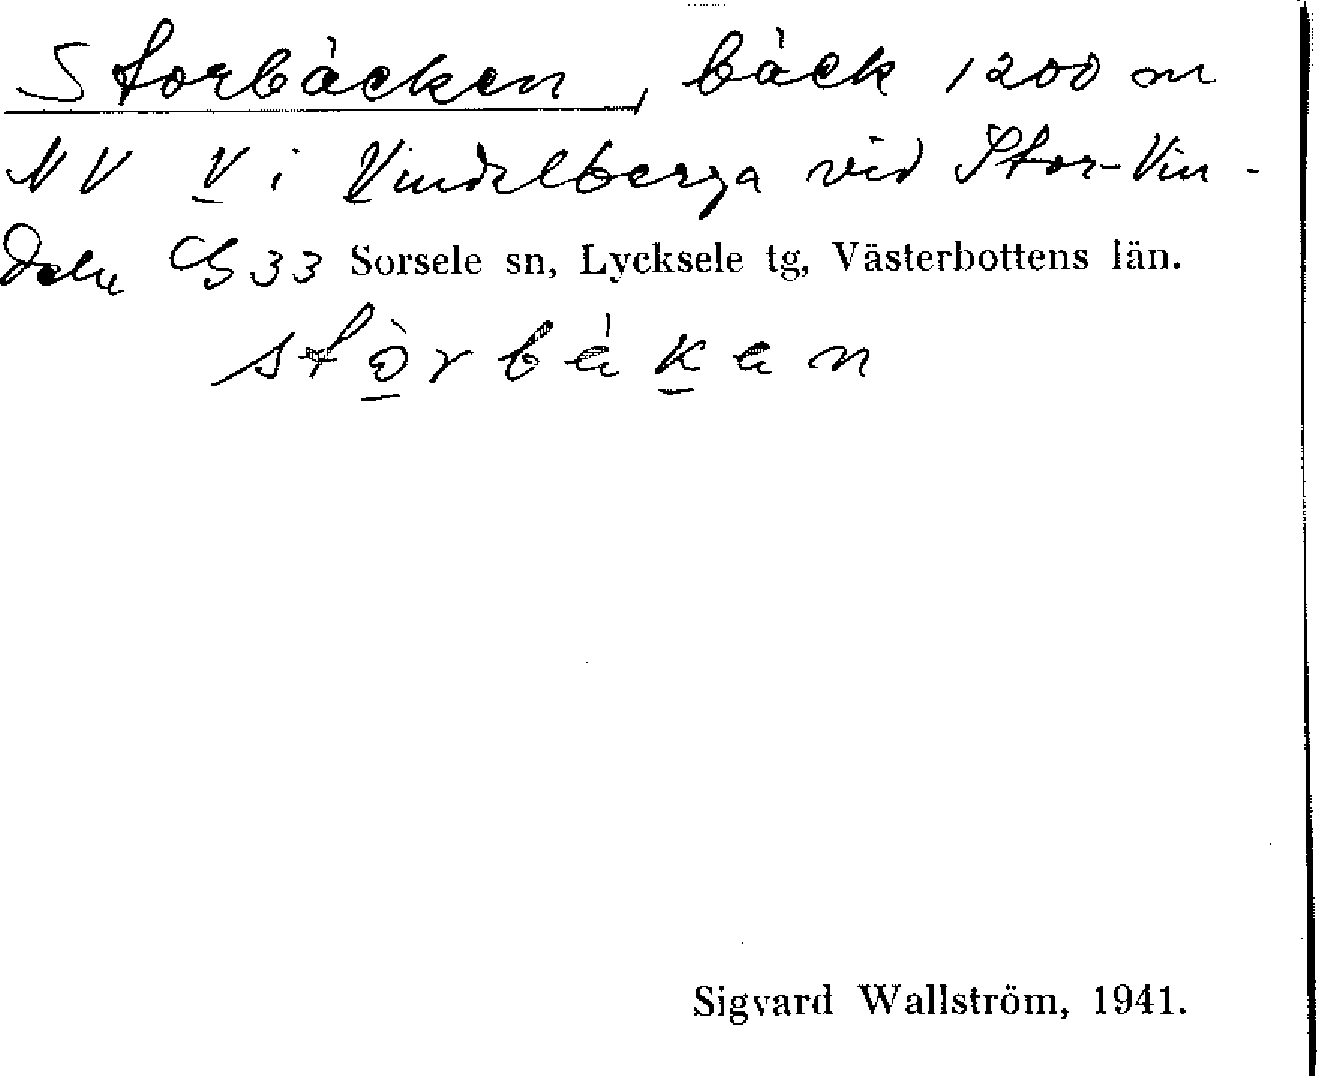 Storbäcken, bäck 1200 m
NV V i Vindelberga vid Stor-Vin-
deln 33 Sorsele sn, Lycksele tg, Västerbottens län.
stòrbákan
Sigvard Wallström, 1941.